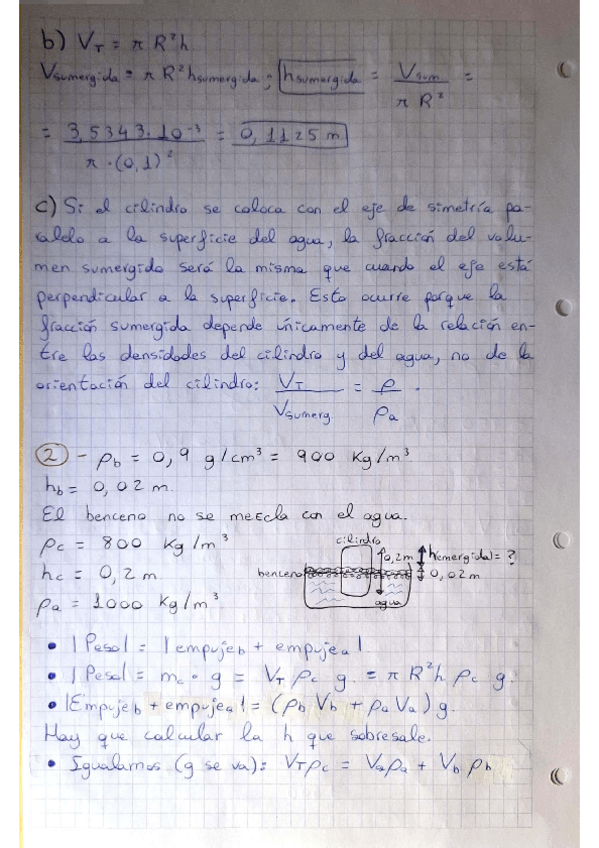 b) V_T = π R²h
V_sumergida = π R² h_sumergida ; h_sumergida = V_sum / π R² =
= 3,5343·10⁻³ / π·(0,1)² = 0,1125 m
c) Si el cilindro se coloca con el eje de simetría pa-
ralelo a la superficie del agua, la fracción del volu-
men sumergido será la misma que cuando el eje está
perpendicular a la superficie. Esto ocurre porque la
fracción sumergida depende únicamente de la relación en-
tre las densidades del cilindro y del agua, no de la
orientación del cilindro: V_T / V_sumerg. = ρ / ρa .
② - ρb = 0,9 g/cm³ = 900 Kg/m³
hb = 0,02 m.
El benceno no se mezcla con el agua.
ρc = 800 Kg/m³
hc = 0,2 m
ρa = 1000 Kg/m³
cilindro
0,2m
h(emergida) = ?
benceno
0,02m
agua
• |Peso| = |empujeb + empujea|
• |Peso| = mc · g = V_T ρc g. = π R²h ρc g.
• |Empujeb + empujea| = (ρb Vb + ρa Va) g.
Hay que calcular la h que sobresale.
• Igualamos (g se va): V_Tρc = Vaρa + Vb ρb